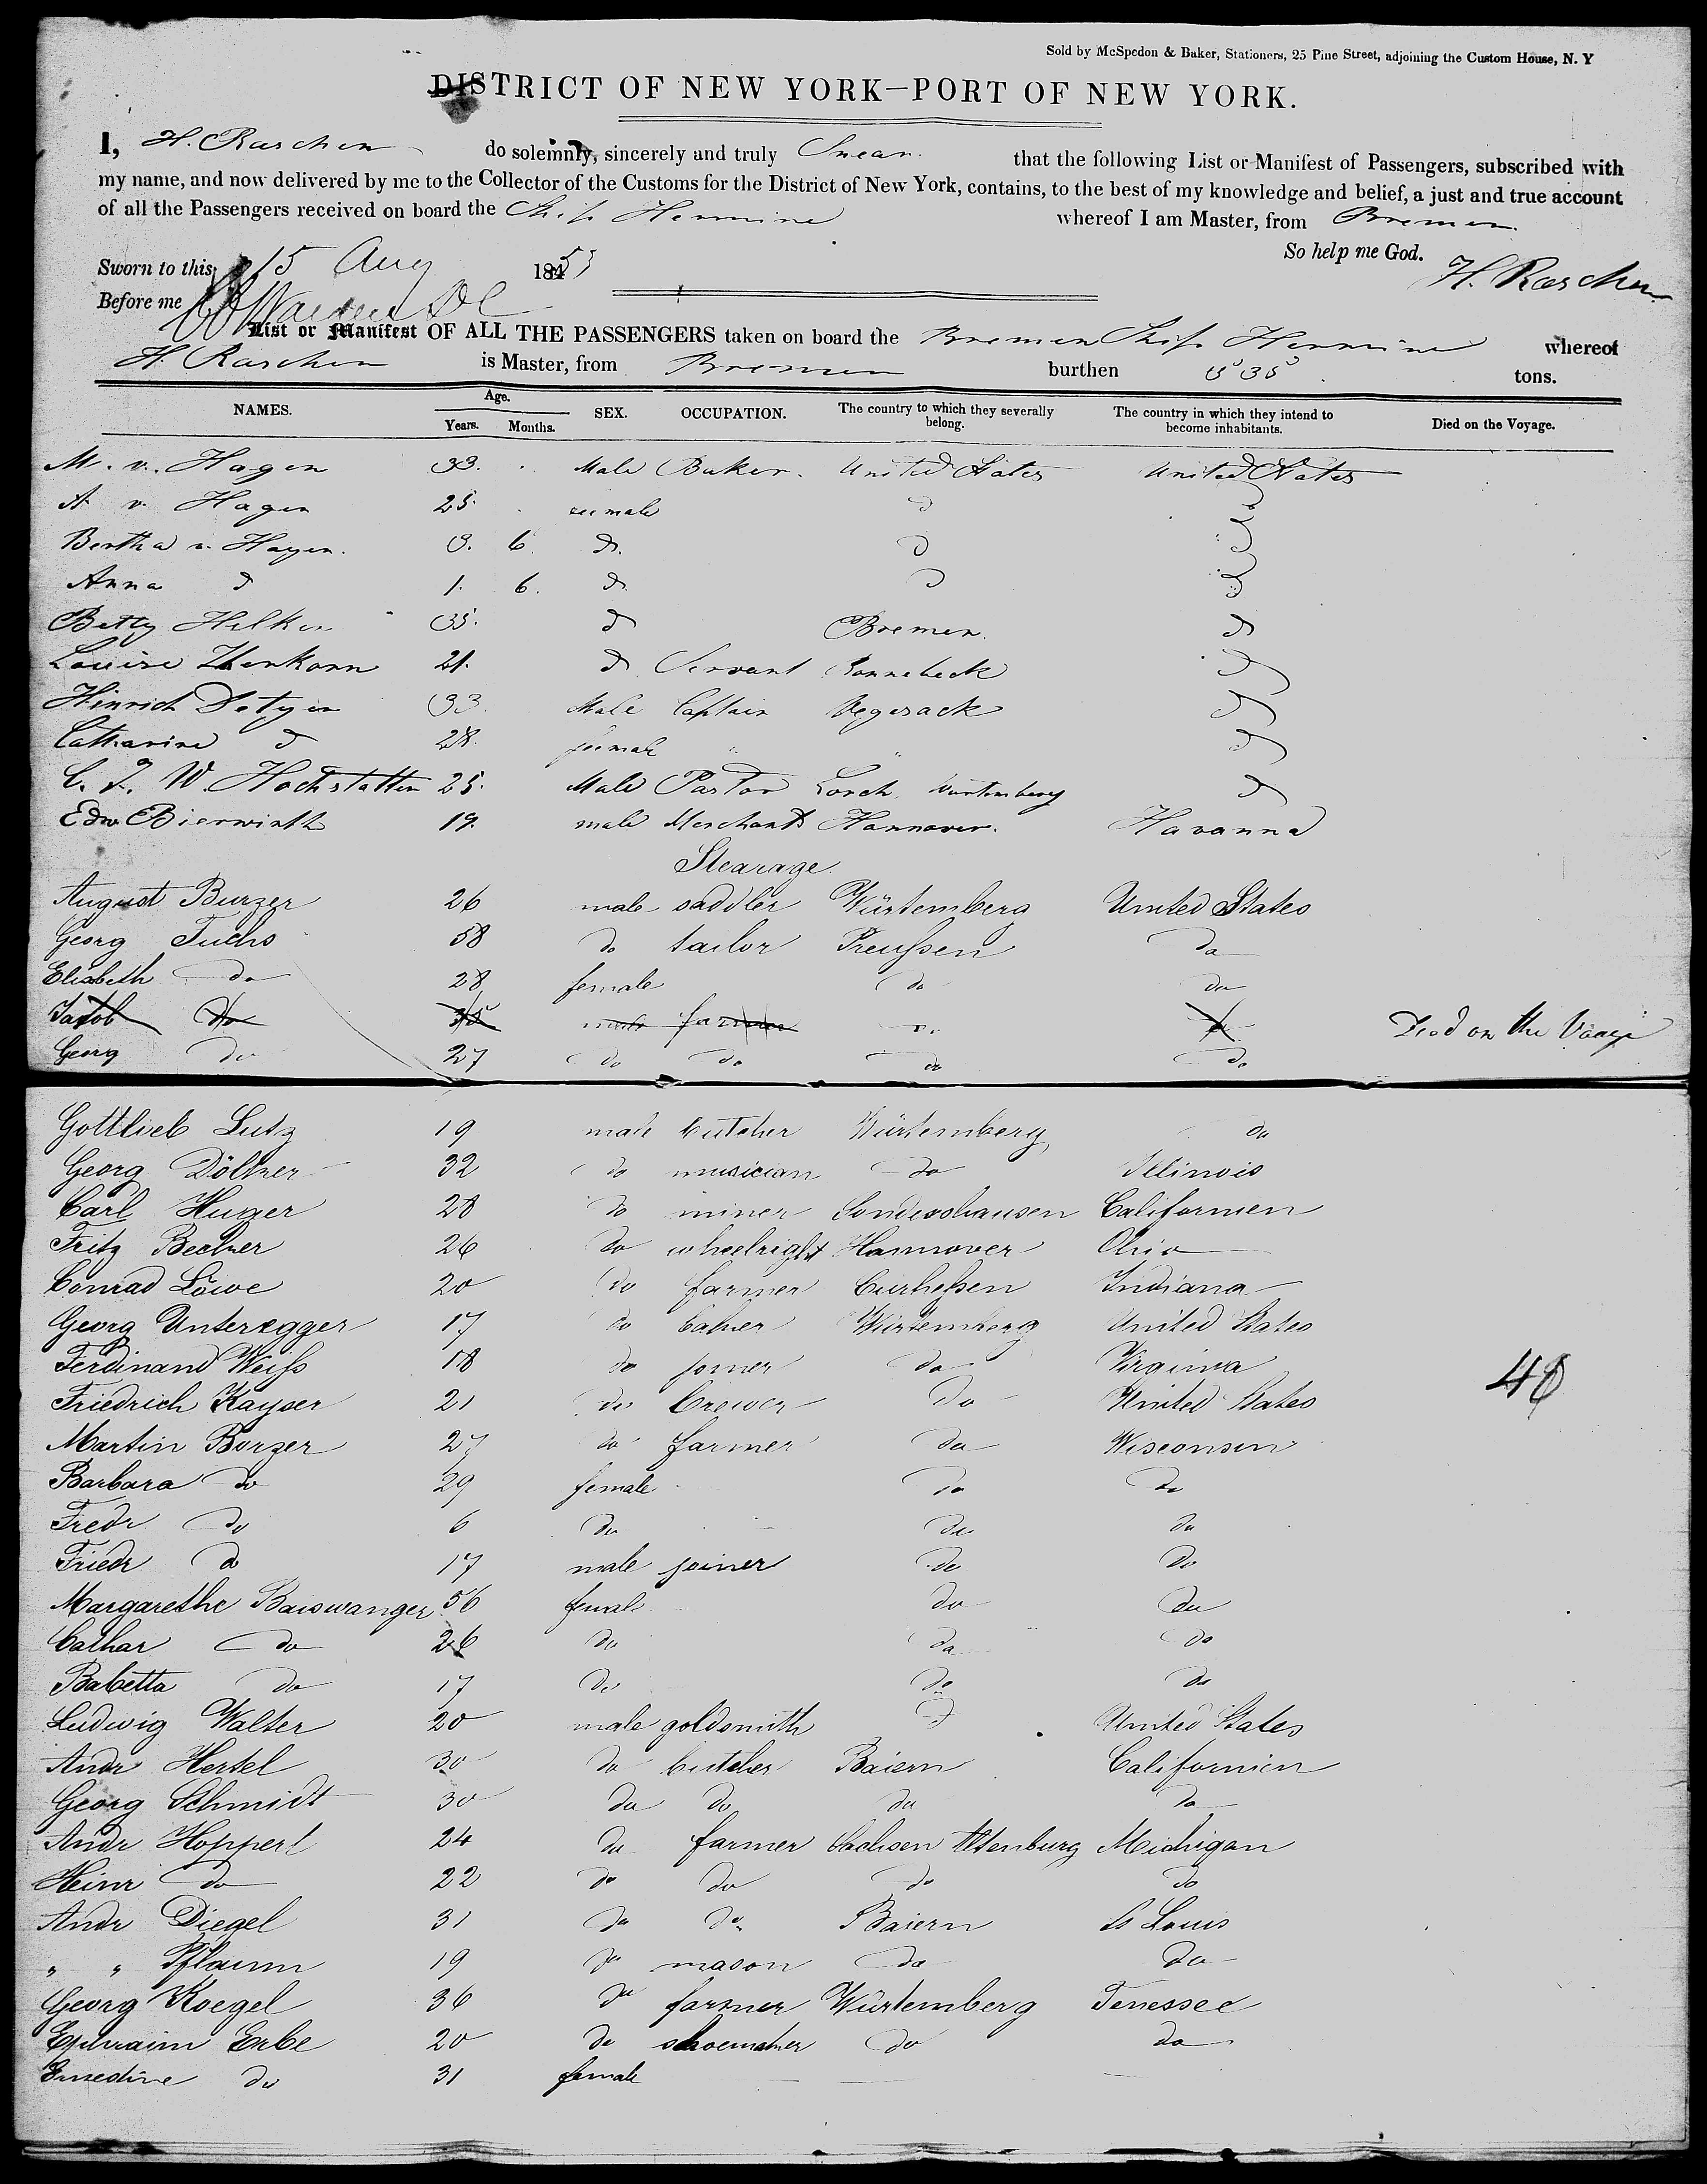 Sold by McSpedon & Baker, Stationers, 25 Pine Street, adjoining the Custom House, N. Y
DISTRICT OF NEW YORK—PORT OF NEW YORK.
I, H. Raschen do solemnly, sincerely and truly Swear that the following List or Manifest of Passengers, subscribed with
my name, and now delivered by me to the Collector of the Customs for the District of New York, contains, to the best of my knowledge and belief, a just and true account
of all the Passengers received on board the Ship Hermine whereof I am Master, from Bremen
So help me God.
Sworn to this 15 Aug 1853 H. Raschen
Before me
List or Manifest OF ALL THE PASSENGERS taken on board the Bremen Ship Hermine whereof
H. Raschen is Master, from Bremen burthen 535 tons.
NAMES. Age. Years. Months. SEX. OCCUPATION. The country to which they severally belong. The country in which they intend to become inhabitants. Died on the Voyage.
M. v. Hagen 33. Male Baker. United States United States
A v. Hagen 25. feemale do do
Bertha v. Hagen. 3. 6. do. do do
Anna do 1. 6. do. do do
Betty Hilken 35. do Bremen. do
Louise 21. do Servant Ronnebeck do
Hinrich Detyen 33 Male Captain Vegesack do
Catharine do 28. feemale do
C. F. W. Hochstatter 25. Male Pastor Lorch Wurtemberg do
Edw Bierwirth 19. male Merchant Hannover. Havanna
Stearage.
August Burzer 26 male saddler Würtemberg United States
Georg Fuchs 58 do tailor Preußen do
Elisabeth do 28 female do do
Jacob do 35 male farmer do do Died on the Voage
Georg do 27 do do do do
Gottlieb Lutz 19 male butcher Würtemberg do
Georg Dölker 32 do musician do Illinois
Carl Huner 28 do miner Sondershausen Californien
Fritz Becker 26 do wheelright Hannover Ohio
Conrad Löwe 20 do farmer Curheßen Indiana
Georg Unteregger 17 do baker Würtemberg United States
Ferdinand Weiß 18 do joiner do Virginia
Friedrich Kayser 21 do brewer do United States
Martin Burzer 27 do farmer do Wisconsin
Barbara do 29 female do do
Fredr do 6 do do do
Friedr do 17 male joiner do do
Margarethe Baiswanger 56 female do do
Cathar do 26 do do do
Babetta do 17 do do do
Ludwig Walter 20 male goldsmith do United States
Andr Hertel 30 do butcher Baiern Californien
Georg Schmidt 30 do do do do
Andr Hoppert 24 do farmer Sachsen Altenburg Michigan
Heinr do 22 do do do do
Andr Diegel 31 do do Baiern St Louis
" " Pflaum 19 do mason do do
Georg Koegel 36 do farmer Würtemberg Tenessee
Ephraim Erbe 20 do shoemaker do do
Ernestine do 31 female